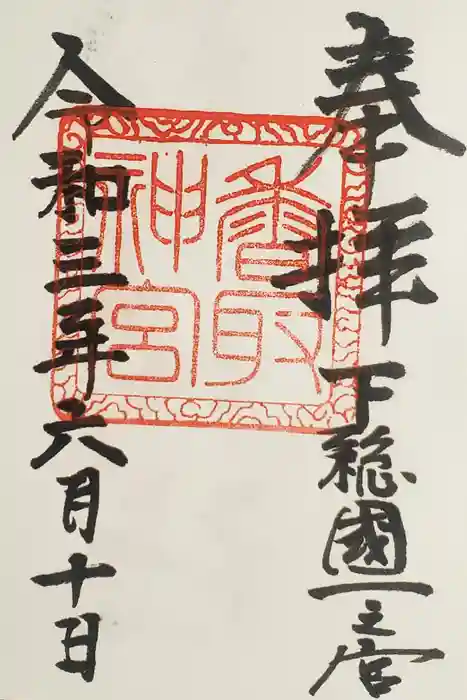 奉拝
下総國一之宮
香取神宮
令和三年六月十日